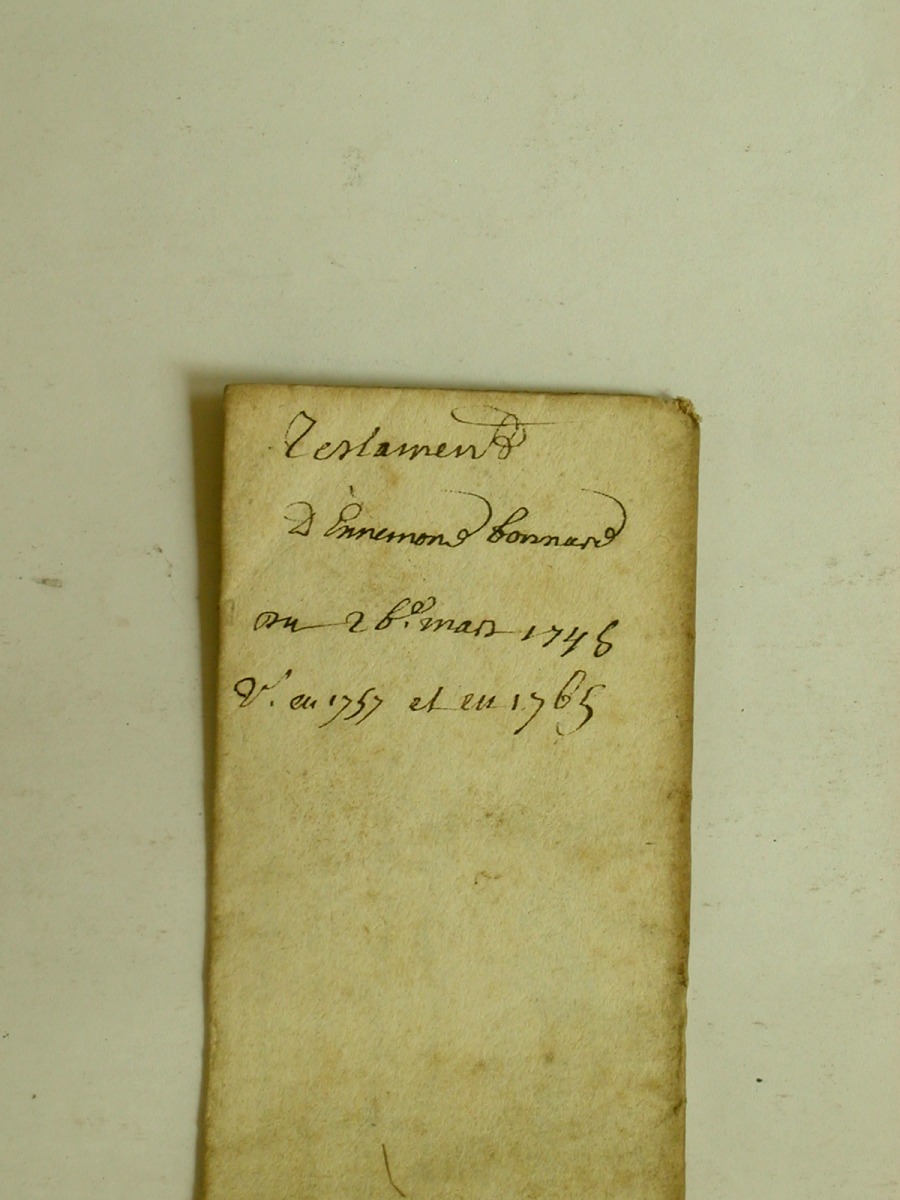 Testament
D'Ennemond bonnard
du 26e. mars 1746
V. en 1757 et en 1765